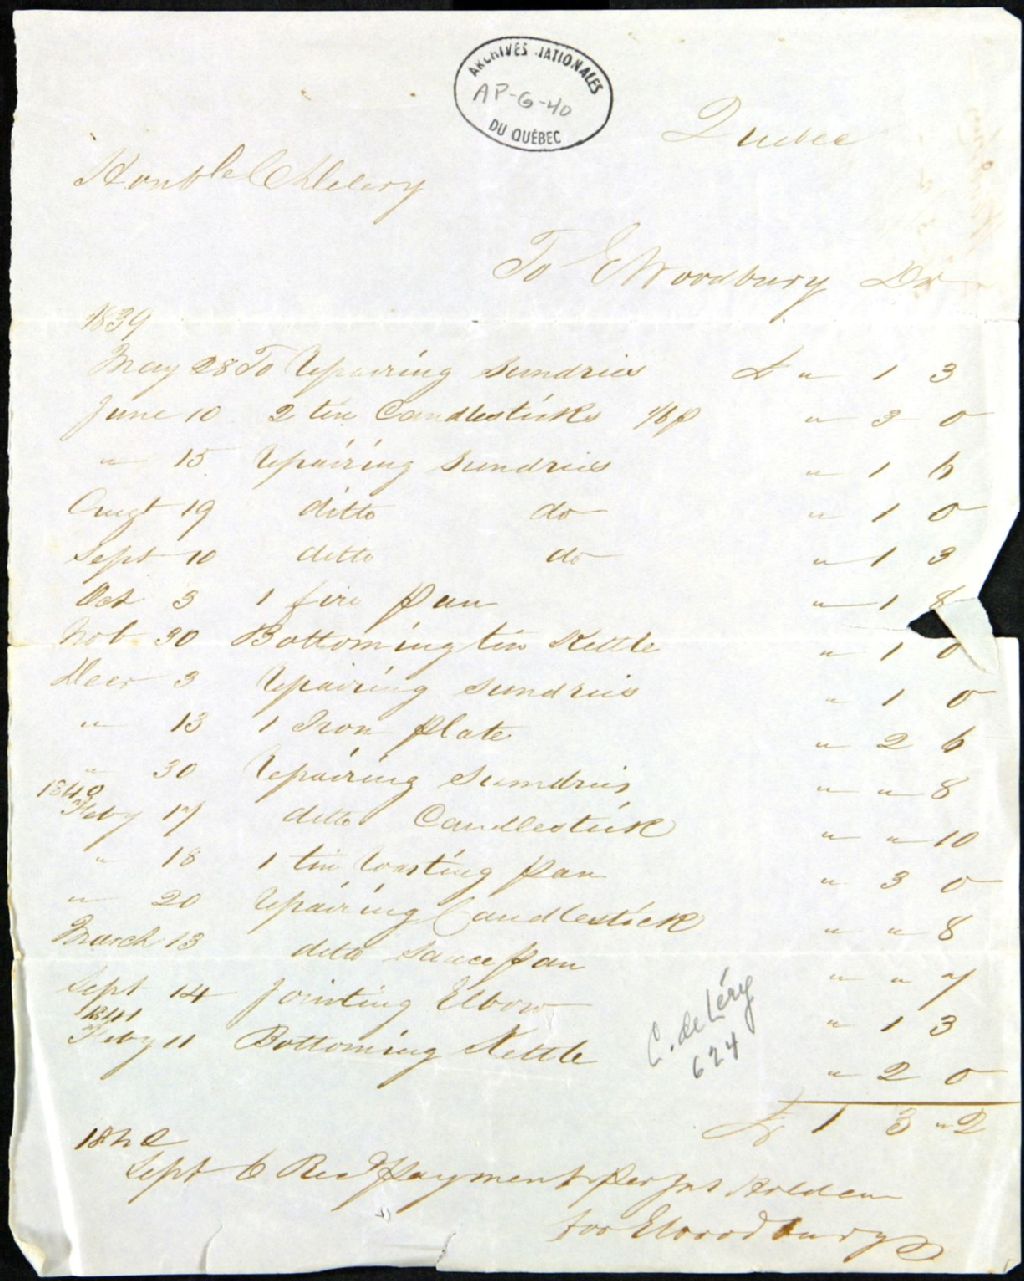 ARCHIVES NATIONALES
AP-G-40
DU QUÉBEC
Quebec
Honble C Delery
To E Woodbury Dr
1839
May 28 To Repairing Sundries £ " 1 3
June 10 2 tin Candlesticks 1/6 p " 3 0
" 15 Repairing Sundries " 1 6
Augt 19 ditto do " 1 0
Sept 10 ditto do " 1 3
Oct 3 1 fire pan " 1 8
Nov 30 Bottoming tin Kettle " 1 0
Decr 3 Repairing Sundries " 1 0
" 13 1 Iron plate " 2 6
" 30 Repairing Sundries " " 8
1840
Feby 17 ditto Candlestick " " 10
" 18 1 tin roasting pan " 3 0
" 20 Repairing Candlestick " " 8
March 13 ditto Sauce pan " " 7
Sept 14 Jointing Elbow " 1 3
1841
Feby 11 Bottoming Kettle " 2 0
C. de Léry
624
£ 1 3 " 2
1842
Sept 6 Recd Payment per Holden
for E Woodbury